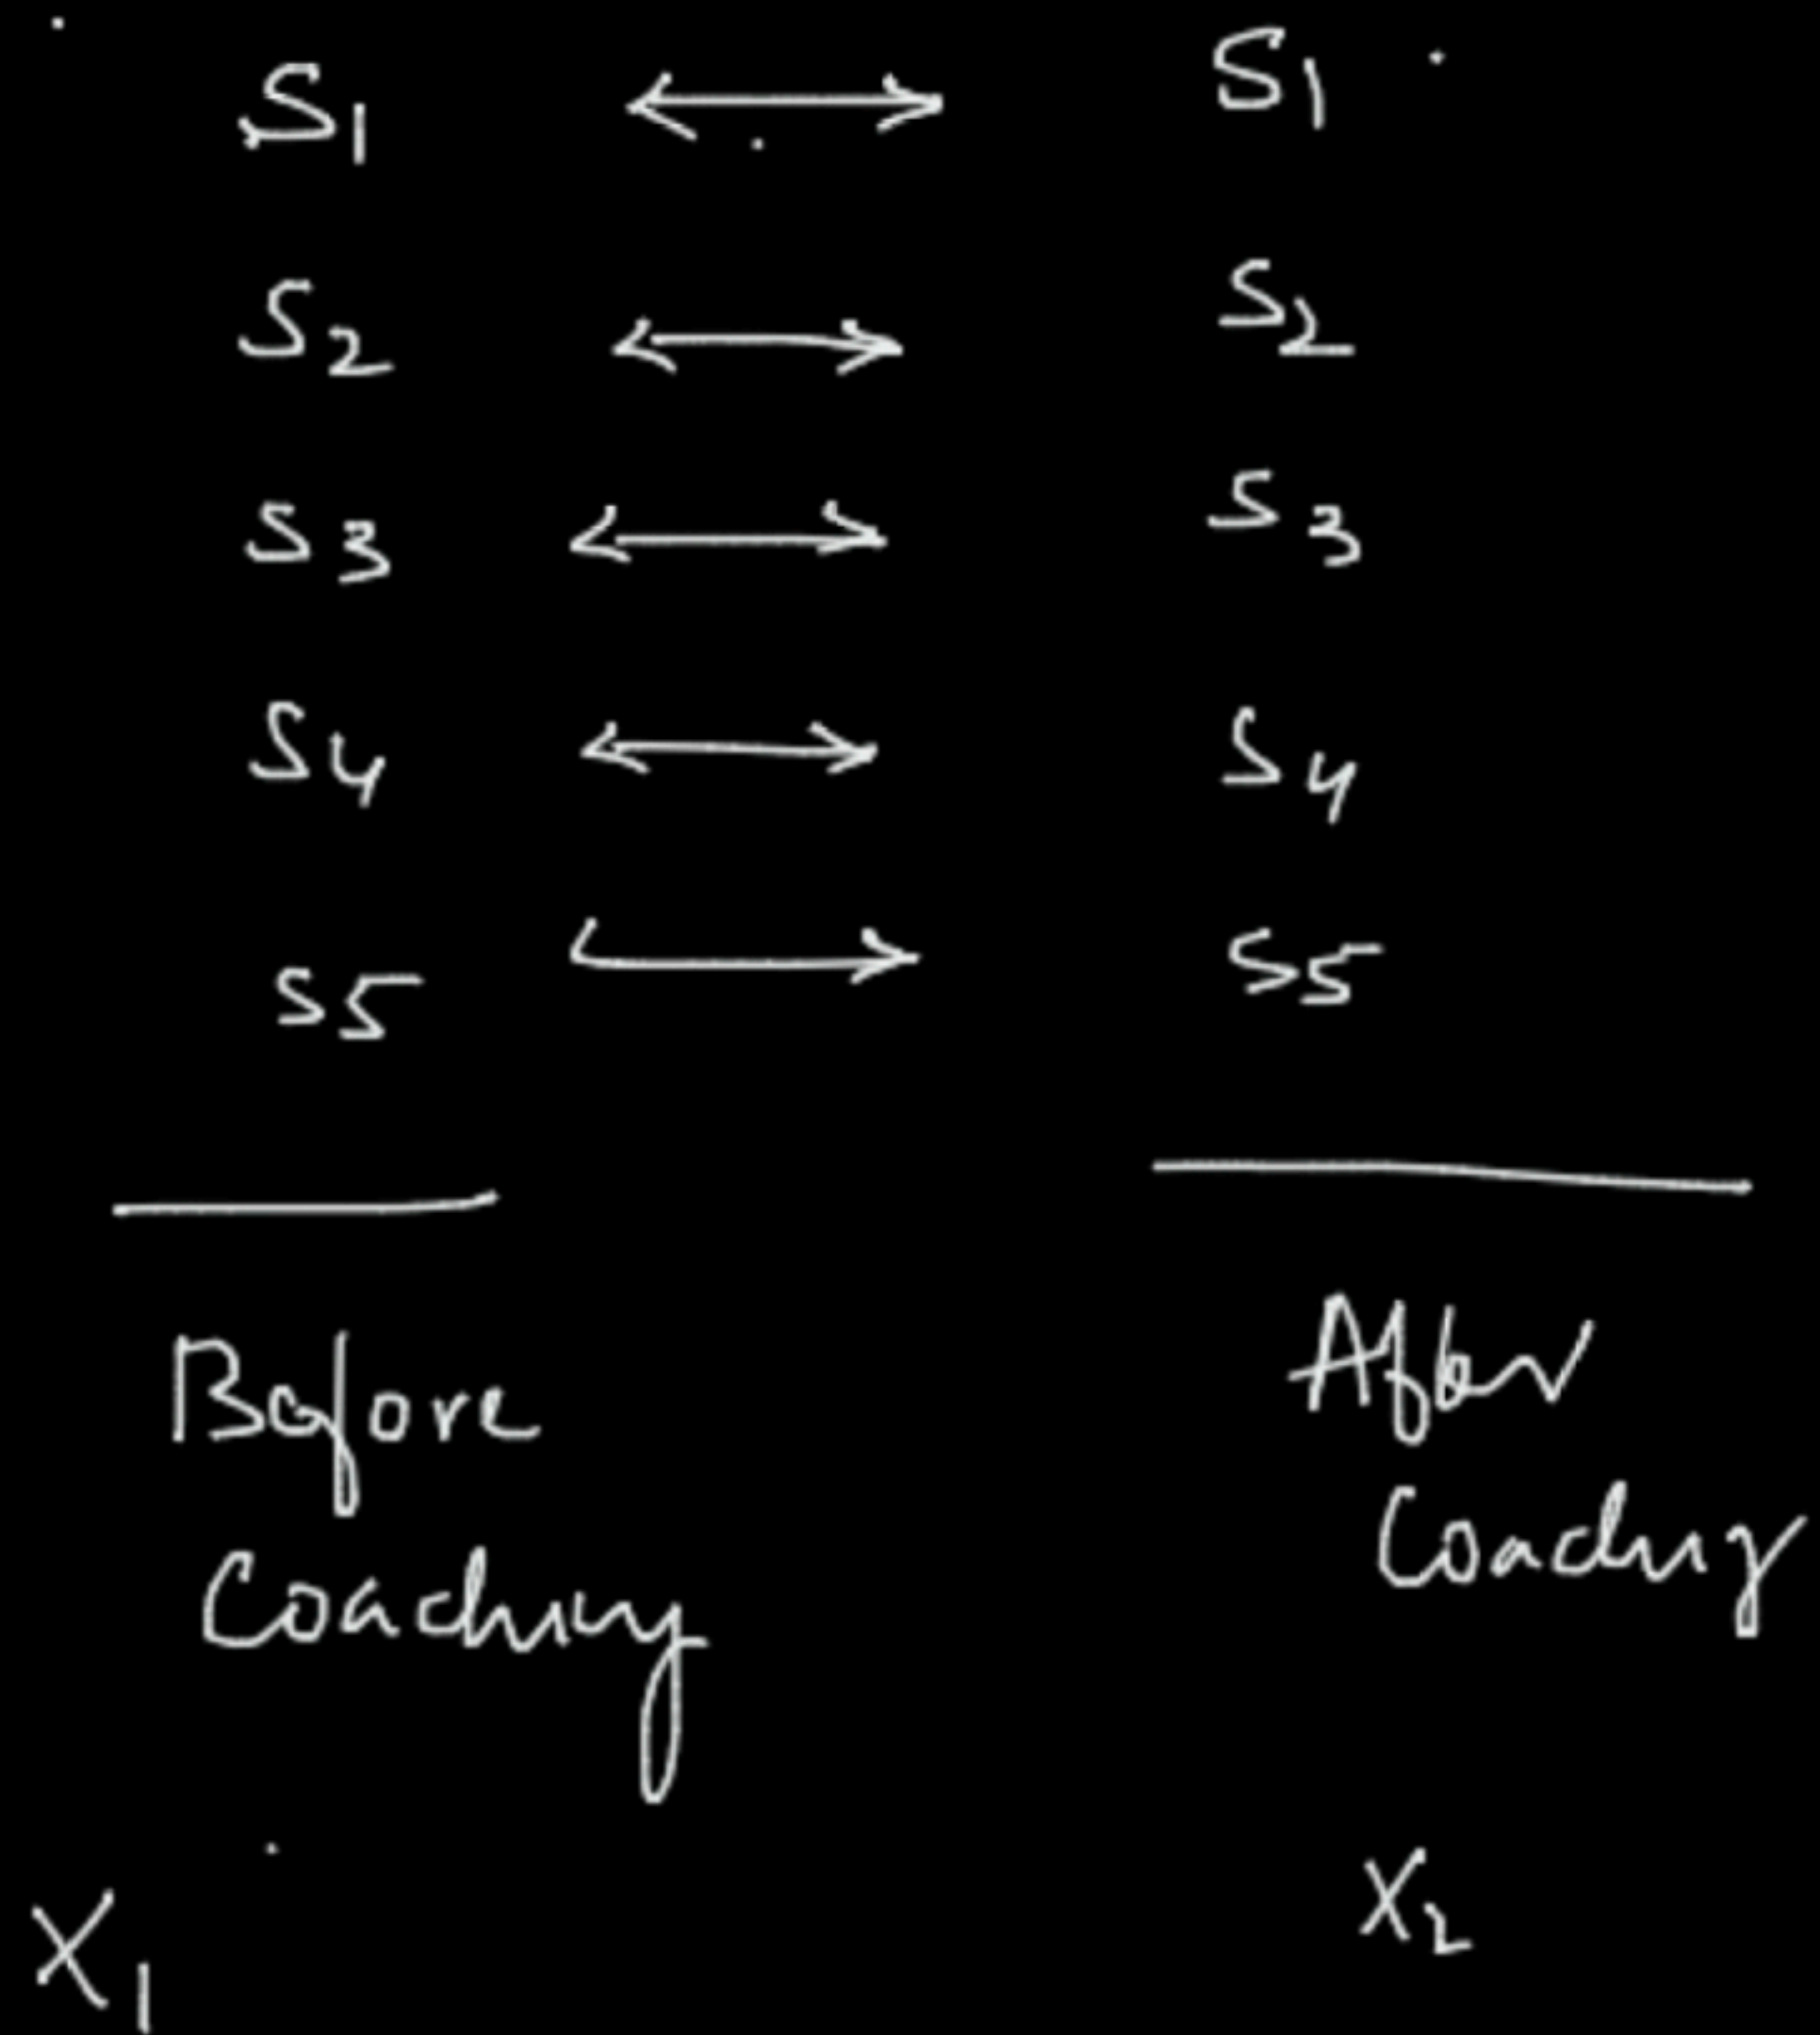 S1 ↔ S1
S2 ↔ S2
S3 ↔ S3
S4 ↔ S4
S5 → S5
Before After
Coaching Coaching
X1 X2